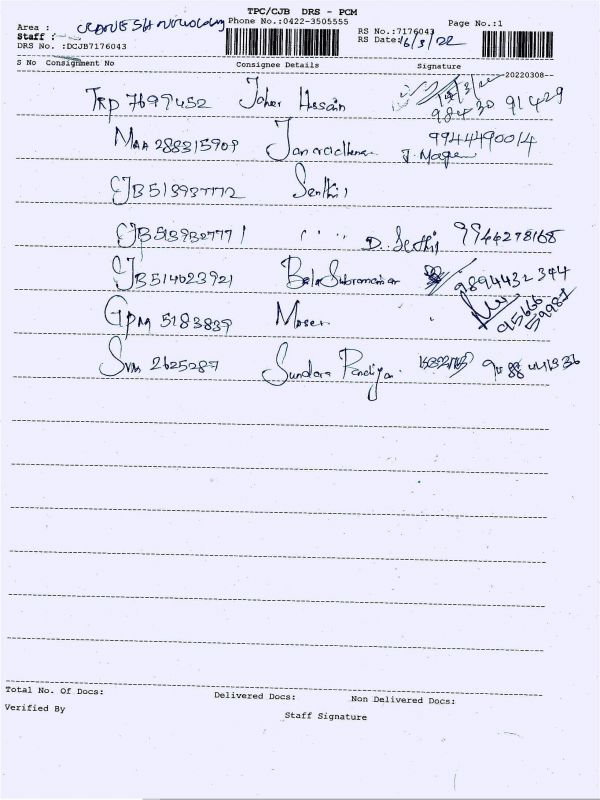 TPC/CJB DRS - PCM
Area : Phone No.:0422-3505555 Page No.:1
Staff : RS No.:7176043
DRS No. :DCJB7176043 RS Date: 16/3/22
S No Consignment No Consignee Details Signature
20220308
TRP 7697452 Jaher Hussain 98430 91429
MAA 288315909 Janardhanan 9944490014
CJB 513937772 Senthil
CJB 513932771 " " D. Senthil 9944278168
CJB 514023921 Bala Subramanian 9894432344
GPM 5183839 Moses 95666
SVM 2625287 Sundara Pandiyan
Total No. Of Docs: Delivered Docs: Non Delivered Docs:
Verified By Staff Signature